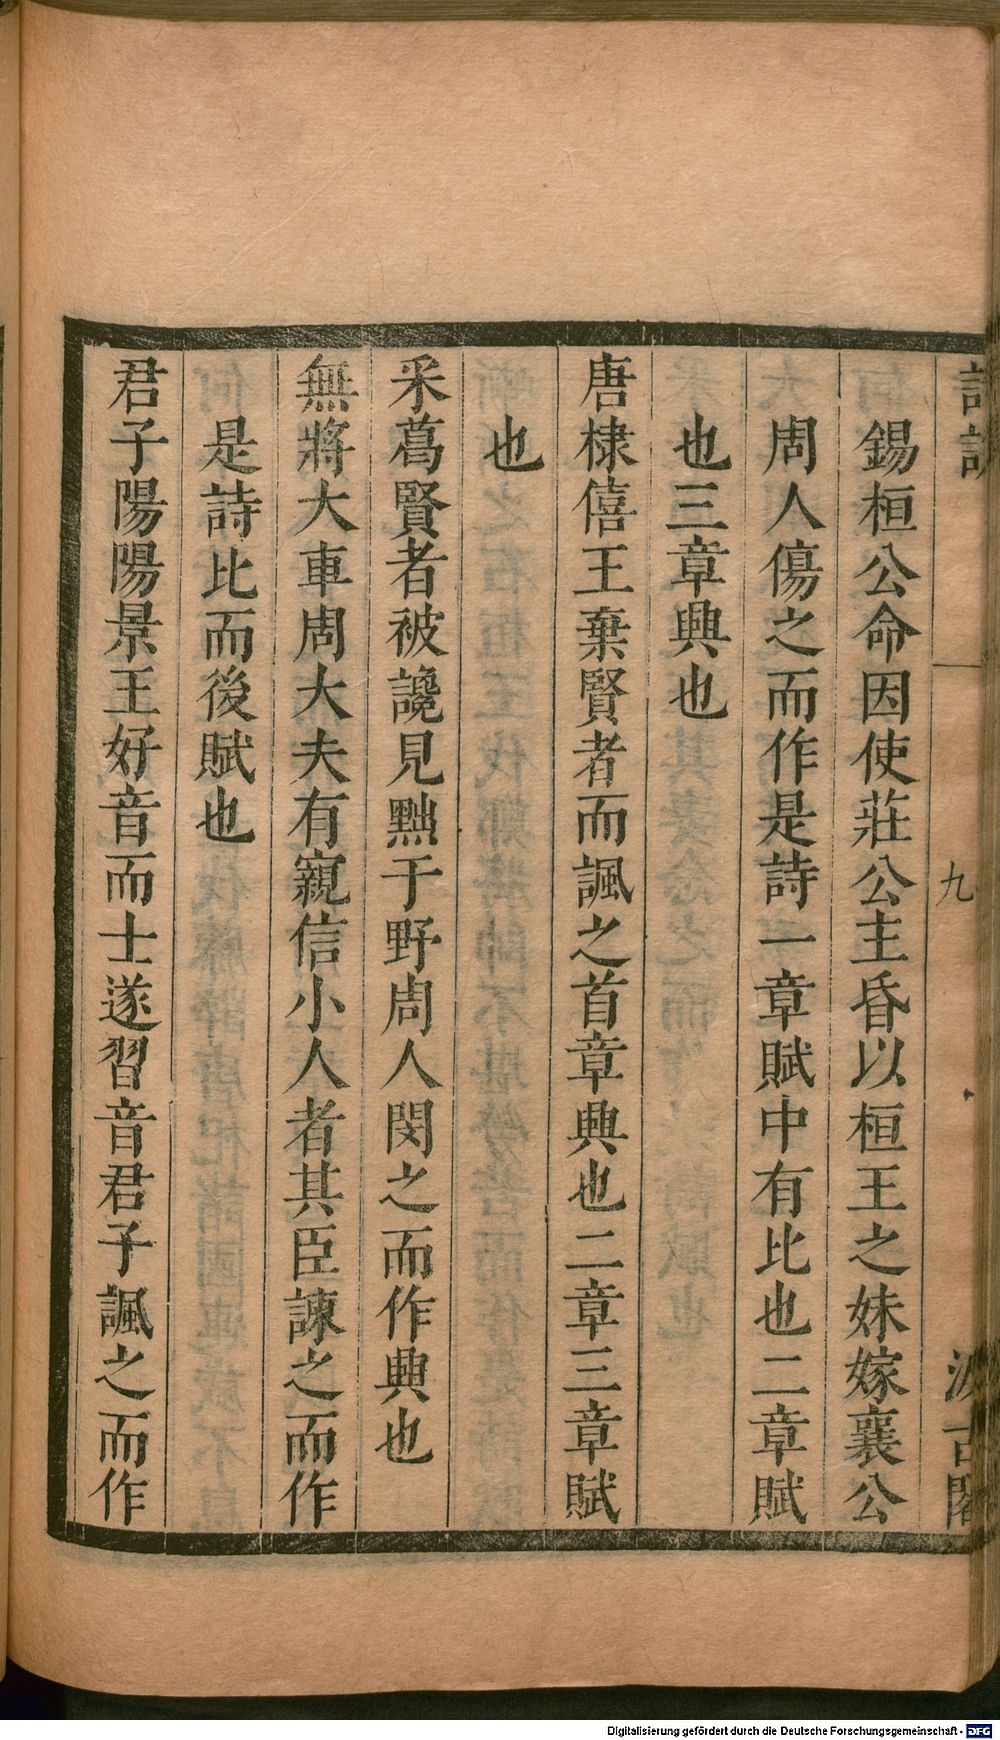 詩說
九
汲古閣
錫桓公命因使莊公主昏以桓王之妹嫁襄公
周人傷之而作是詩一章賦中有比也二章賦
也三章興也
唐棣僖王棄賢者而諷之首章興也二章三章賦
也
采葛賢者被讒見黜于野周人閔之而作興也
無將大車周大夫有寵信小人者其臣諫之而作
是詩比而後賦也
君子陽陽景王好音而士遂習音君子諷之而作
Digitalisierung gefördert durch die Deutsche Forschungsgemeinschaft - DFG